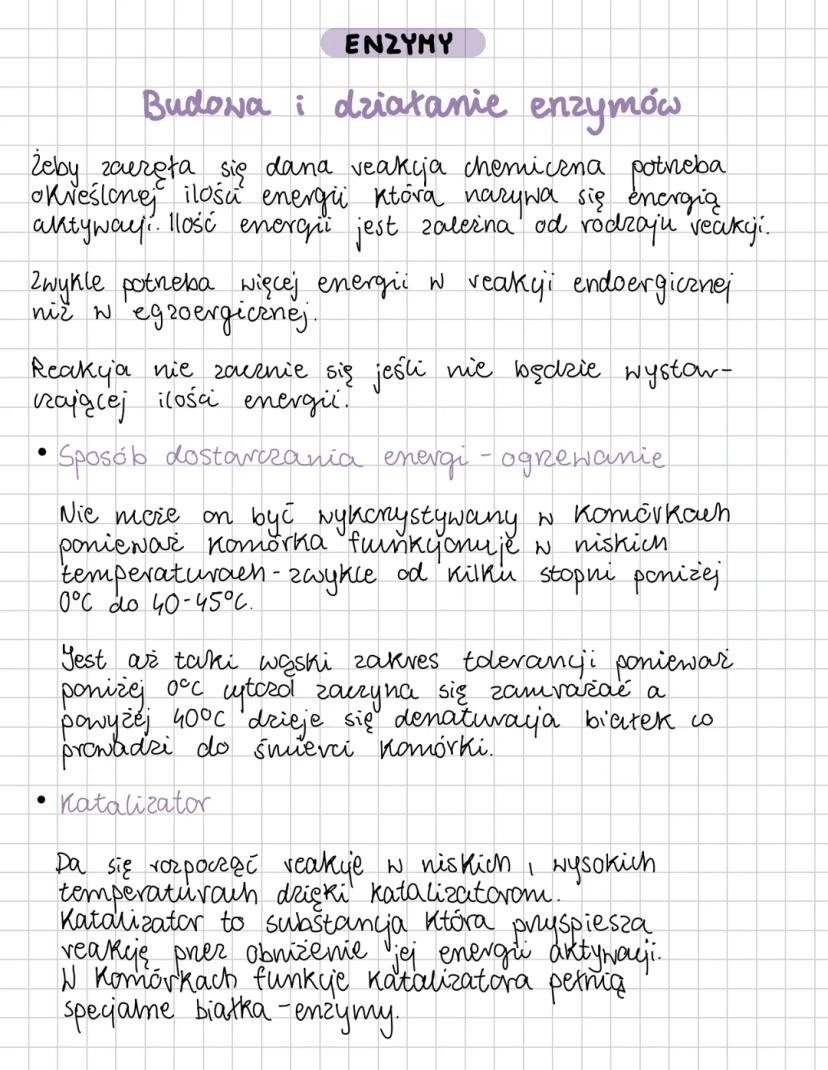 ENZYMY
Budowa i działanie enzymów
Żeby zaczęła się dana reakcja chemiczna potrzeba
określonej ilości energii która nazywa się energią
aktywacji. Ilość energii jest zależna od rodzaju reakcji.
Zwykle potrzeba więcej energii w reakcji endoergicznej
niż w egzoergicznej.
Reakcja nie zacznie się jeśli nie będzie wystar-
czającej ilości energii.
• Sposób dostarczania energi - ogrzewanie
Nie może on być wykorzystywany w komórkach
ponieważ komórka funkcjonuje w niskich
temperaturach - zwykle od kilku stopni poniżej
0°C do 40-45°C.
Jest aż taki wąski zakres tolerancji ponieważ
poniżej 0°C cytozol zaczyna się zamrażać a
powyżej 40°C dzieje się denaturacja białek co
prowadzi do śmierci komórki.
• Katalizator
Da się rozpocząć reakcje w niskich i wysokich
temperaturach dzięki katalizatorom.
Katalizator to substancja która przyśpiesza
reakcję przez obniżenie jej energii aktywacji.
W komórkach funkcje katalizatora pełnią
specjalne białka - enzymy.